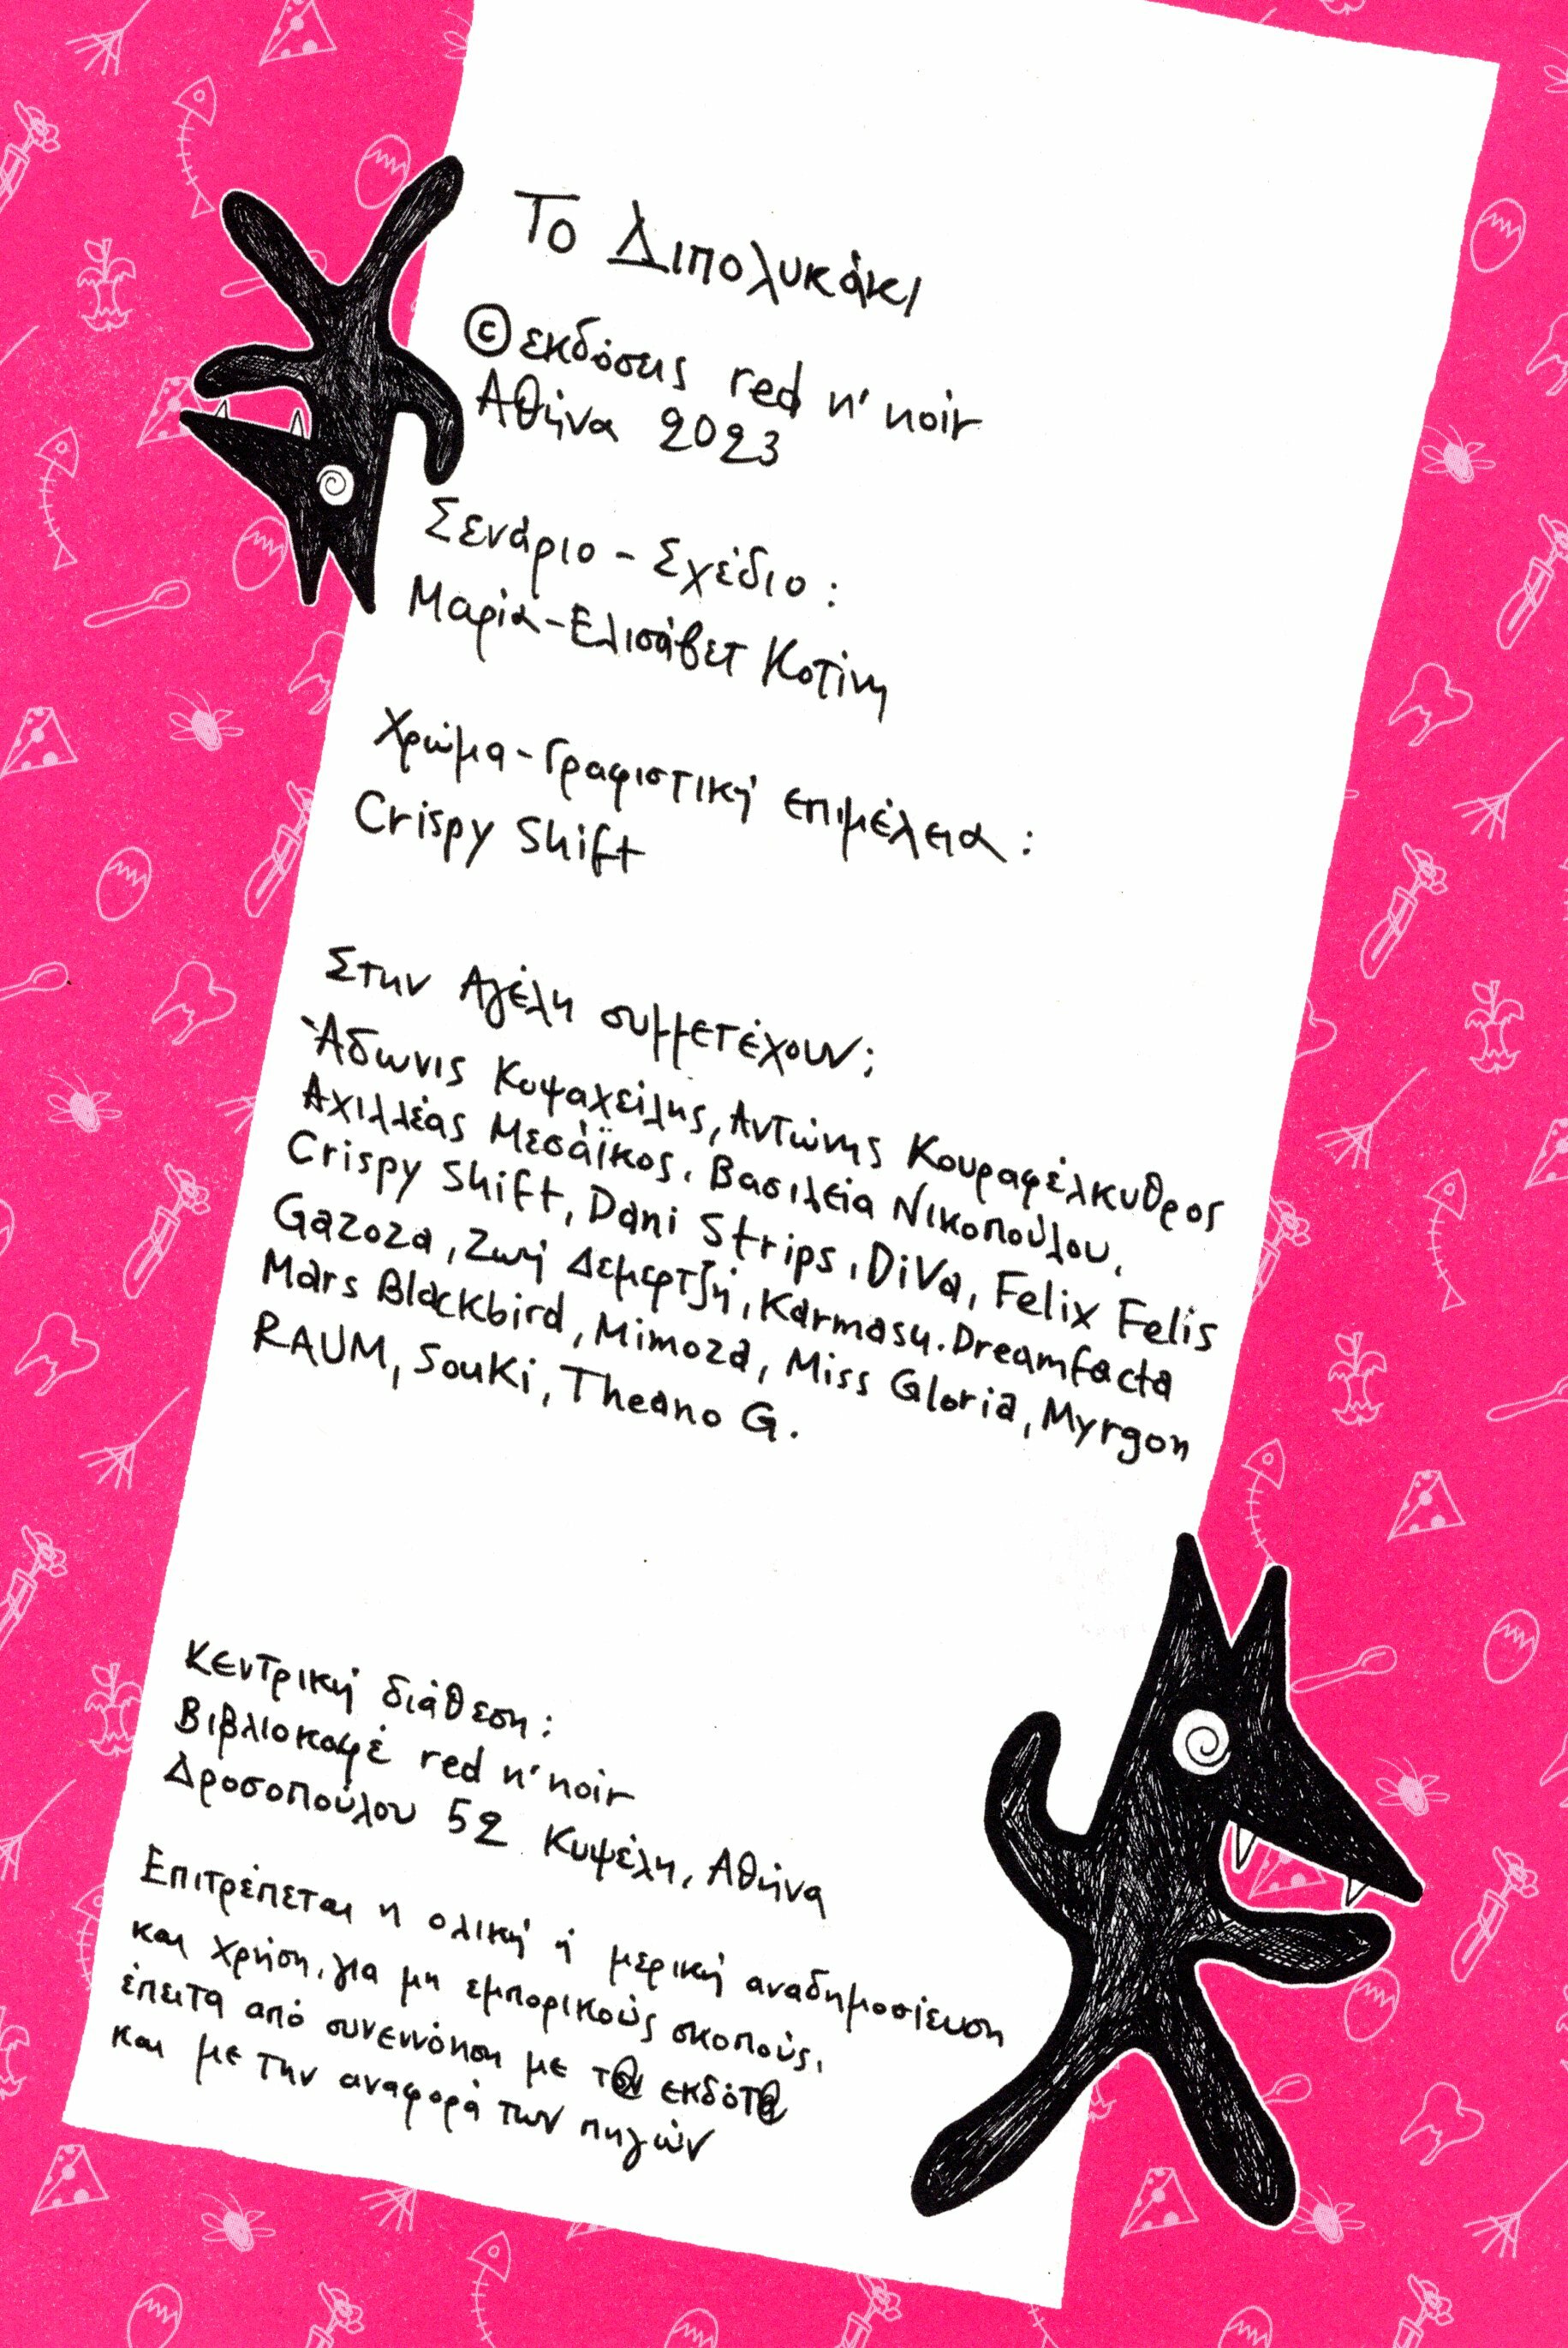 Το Διπολυκάκι
© εκδόσεις red n' noir
Αθήνα 2023
Σενάριο - Σχέδιο :
Μαρία-Ελισάβετ Κοτίνη
Χρώμα - Γραφιστική επιμέλεια :
Crispy Shift
Στην Αγέλη συμμετέχουν :
Άδωνις Κοψαχείλης, Αντώνης Κουραφέλκυθρος
Αχιλλέας Μεσάϊκος, Βασιλεία Νικοπούλου,
Crispy Shift, Dani Strips, DiVa, Felix Felis
Gazoza, Ζωή Δεμερτζή, Karmasu.Dreamfacta
Mars Blackbird, Mimoza, Miss Gloria, Myrgon
RAUM, Souki, Theano G.
Κεντρική διάθεση :
Βιβλιοκαφέ red n' noir
Δροσοπούλου 52 Κυψέλη, Αθήνα
Επιτρέπεται η ολική ή μερική αναδημοσίευση
και χρήση, για μη εμπορικούς σκοπούς,
έπειτα από συνεννόηση με τ@ν εκδότ@
και με την αναφορά των πηγών